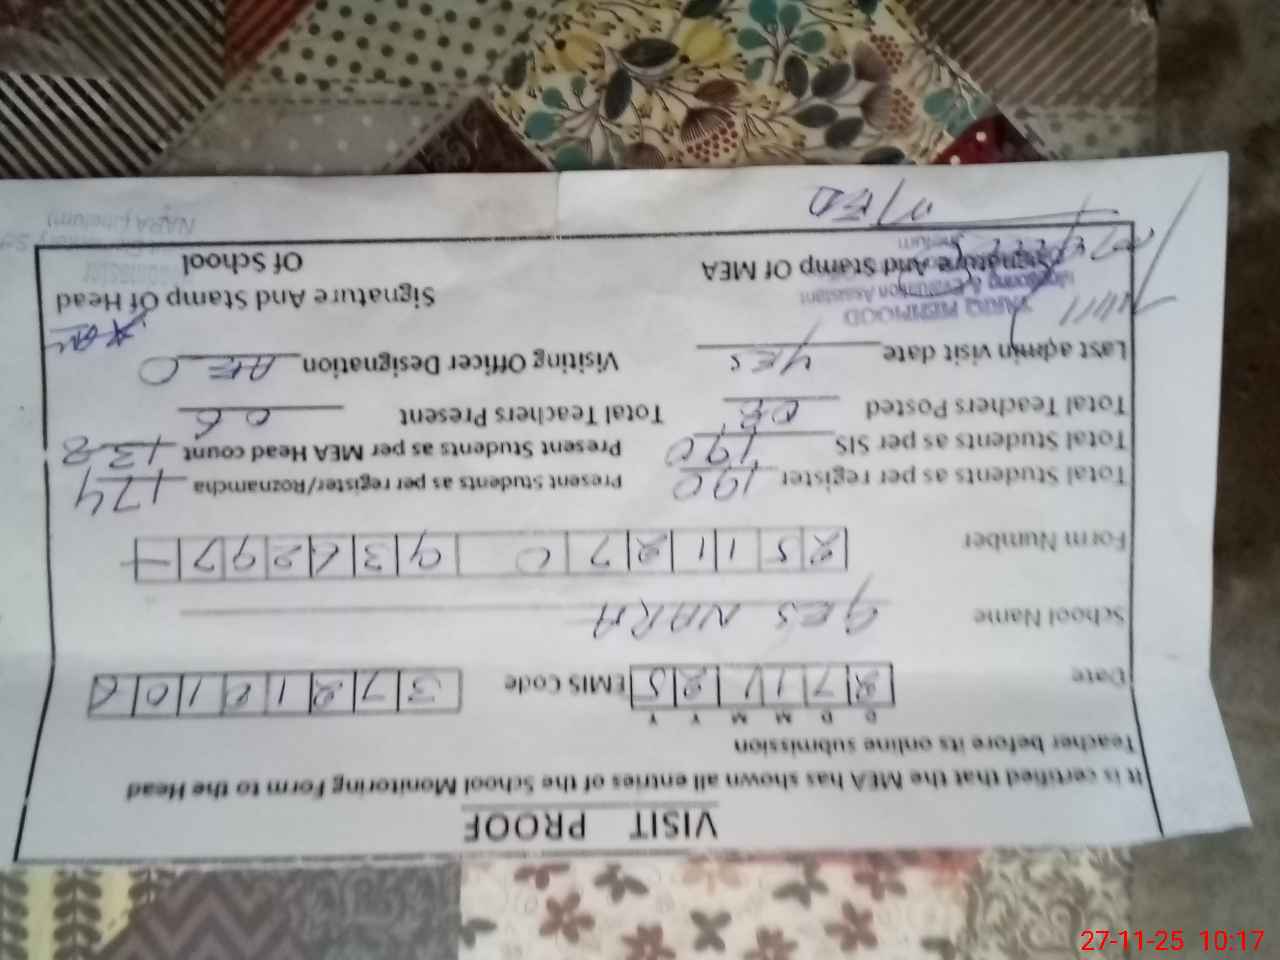 VISIT PROOF
It is certified that the MEA has shown all entries of the School Monitoring Form to the Head
Teacher before its online submission
D D M M Y Y
Date 27 11 25 EMIS Code 37210106
School Name GES NARA
Form Number 251127 0 936297
Total Students as per register 190 Present Students as per register/Roznamcha 174
Total Students as per SIS 190 Present Students as per MEA Head count 138
Total Teachers Posted 08 Total Teachers Present 06
Last admin visit date YES Visiting Officer Designation AEO
TARIQ MEHMOOD
Monitoring & Evaluation Assistant
Signature And Stamp Of MEA Signature And Stamp Of Head
Of School
Jhelum
NARA (Jhelum)
27-11-25 10:17